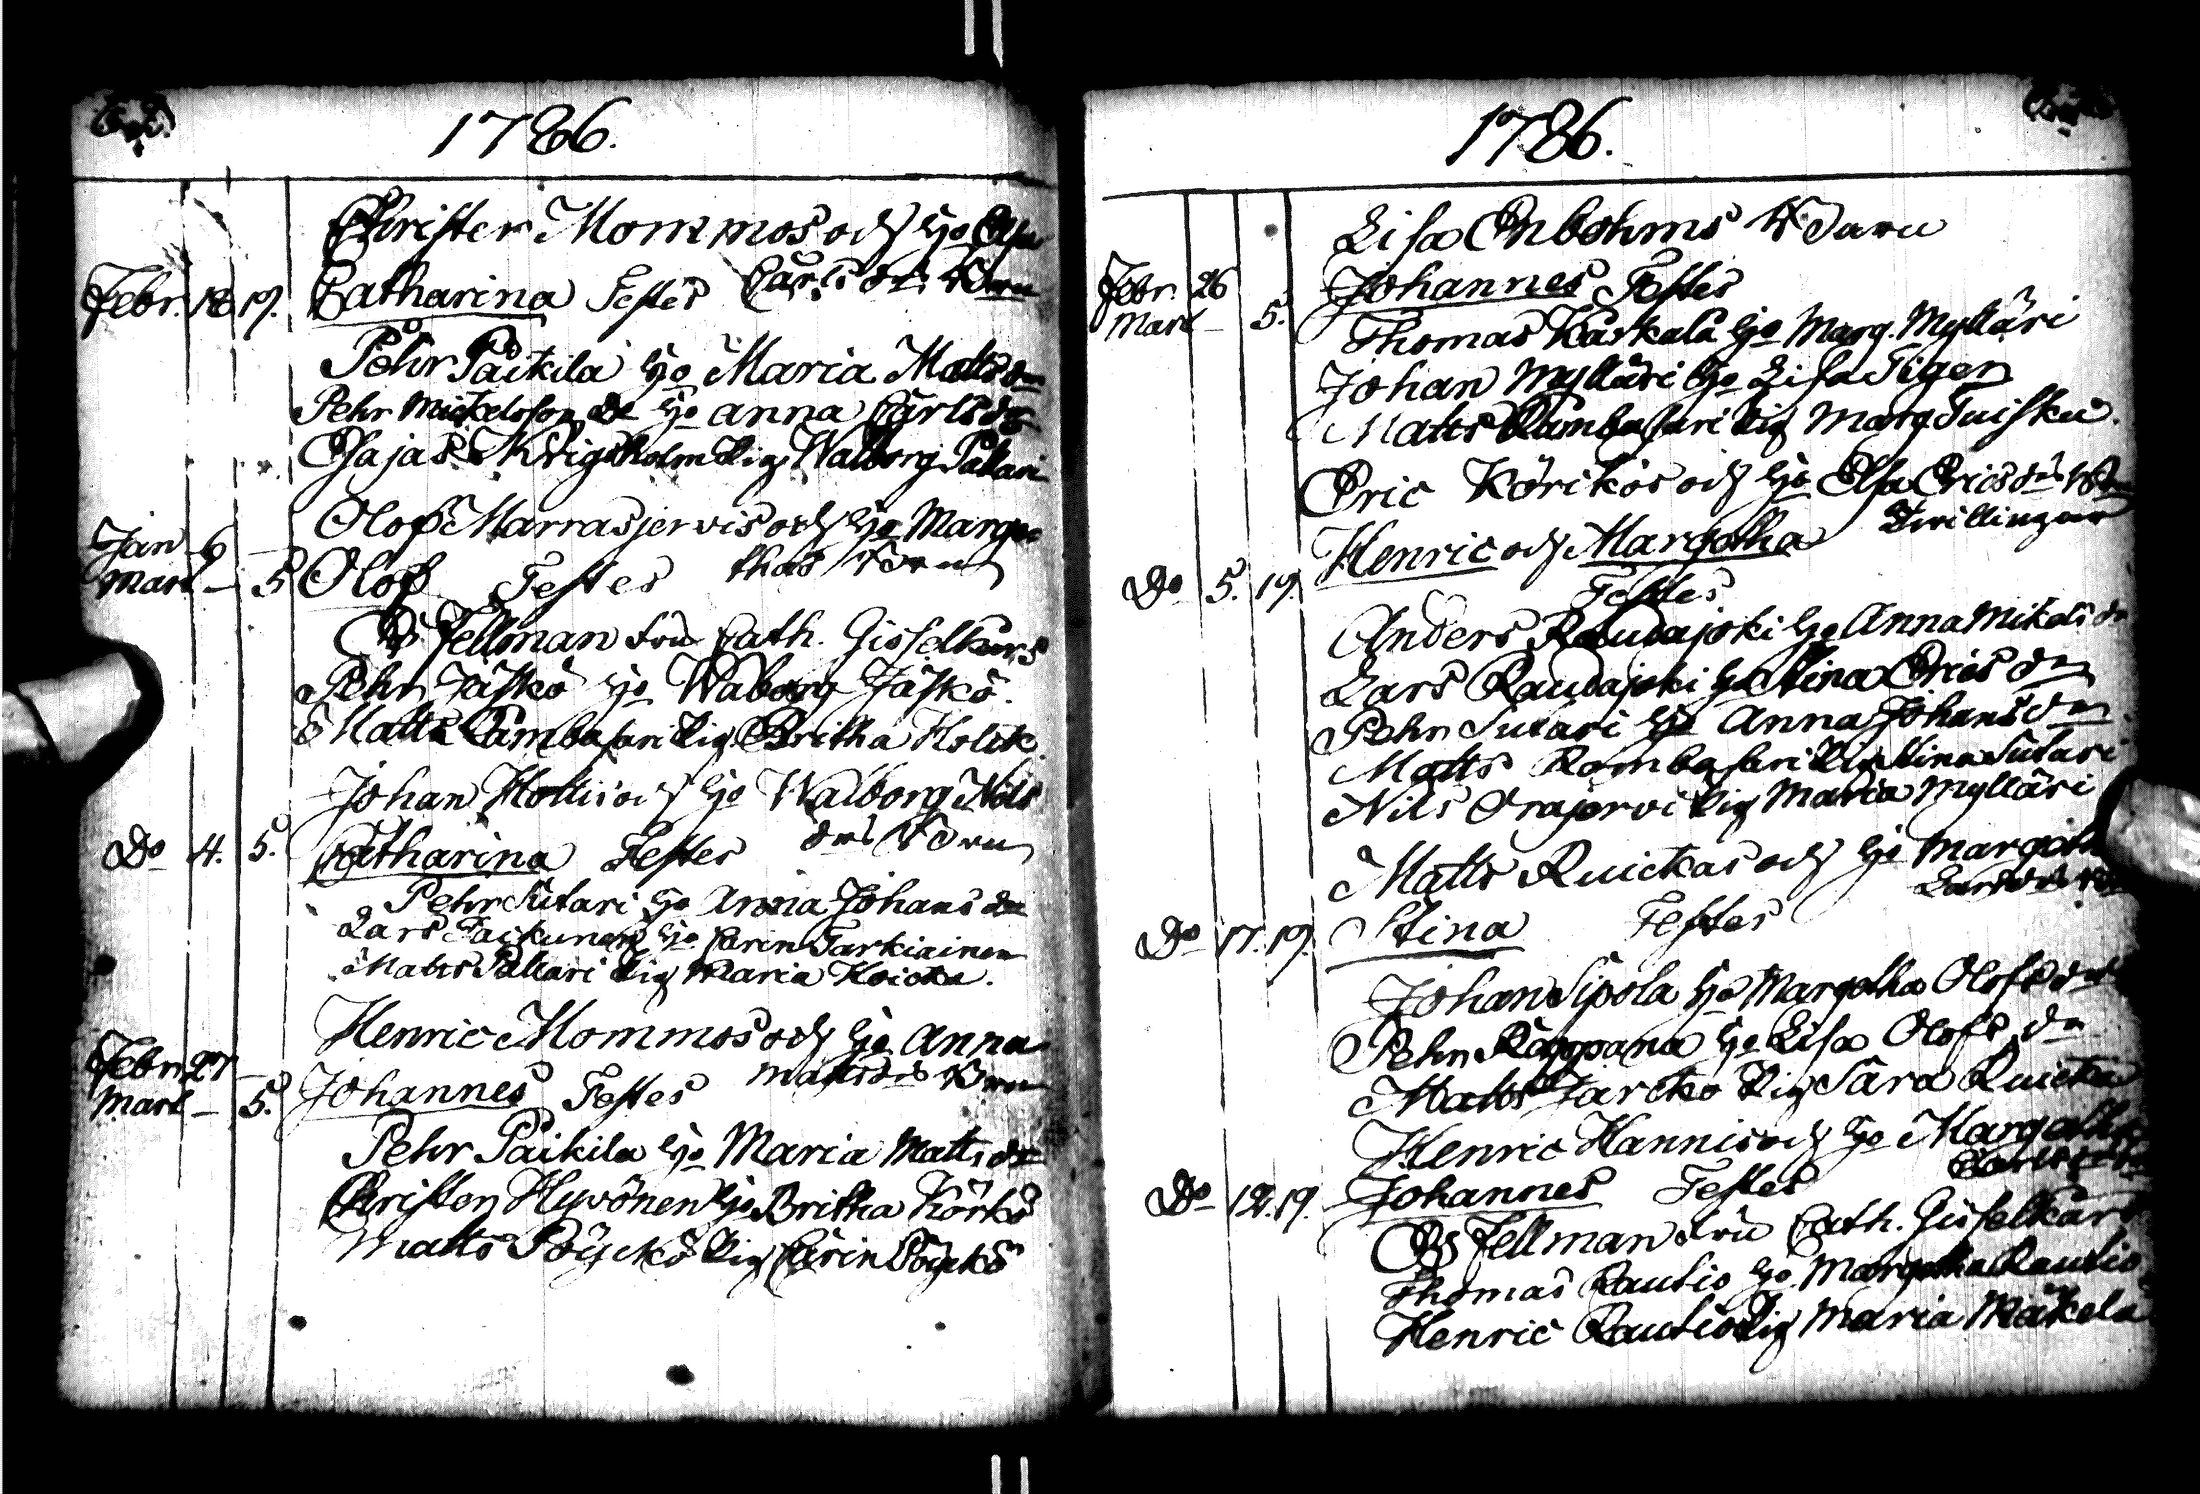 1786.
Christer Mommos och Hjo Elsa
Febr. 18 19. Catharina Testes Carlsdrs
Pehr Paikila Hjo Maria Mattsdr
Pehr Mickelsson dr Hjo Anna Carlsdr
Esajas Krigsholm Pig Walborg Pallari
Olof Marrasjervis och Hjo Marge
Jan 6
Mart - 5 Olof Testes thas
B: Fellman Fru Cath. Gisselkors
Pehr Jäskö Hjo Waborg Jäskö.
Matts Rambasari Pig Britha Holck
Johan Hottis och Hjo Walborg Nils
Do 4. 5. Catharina Testes drs
Pehr Sutari Hjo Anna Johans dr
Lars Tackunen Hjo Carin Tarkiainen
Matts Pallari Pig Maria Koicka.
Henric Mommos och Hjo Anna
Febr. 27 -
Mart - 5. Johannes Testes Mattsdrs
Pehr Paikila Hjo Maria Mattsdr
Christer Hyvönen Hjo Britha Körkö
Matts Pöyckö Pig Carin Pöyckö
1786.
Lisa Enbohms
Febr. 26 Johannes Testes
Mart - 5.
Thomas Karkala Hjo Marg. Mylläri
Johan Mylläri Hjo Lisa Tiger
Matts Rambasari Pig Marg Tuisku.
Eric Körikös och Hjo Elsa Ericsdrs
Henric och Margetha Twillingar
Do 5. 19.
Testes
Anders Raudajoki Hjo Anna Mikels dr
Lars Raudajoki Hjo Stina Erics dr
Pehr Sutari Hjo Anna Johans dr
Matts Rambasari Pig Stina Sutari
Nils Orajervi Pig Maria Mylläri
Matts Ruickas och Hjo Margeth
Do 17. 19. Stina Testes
Johan Sipola Hjo Margetha Olofs dr
Pehr Kappana Hjo Lisa Olofs dr
Matts Jarcko Pig Sara Ruicka
Henric Hannis och Hjo Margetha
Do 12. 19. Johannes Testes
B: Fellman Fru Cath. Gisselkors
Thomas Rautio Hjo Margetha Rautio
Henric Rautio Pig Maria Mäkela